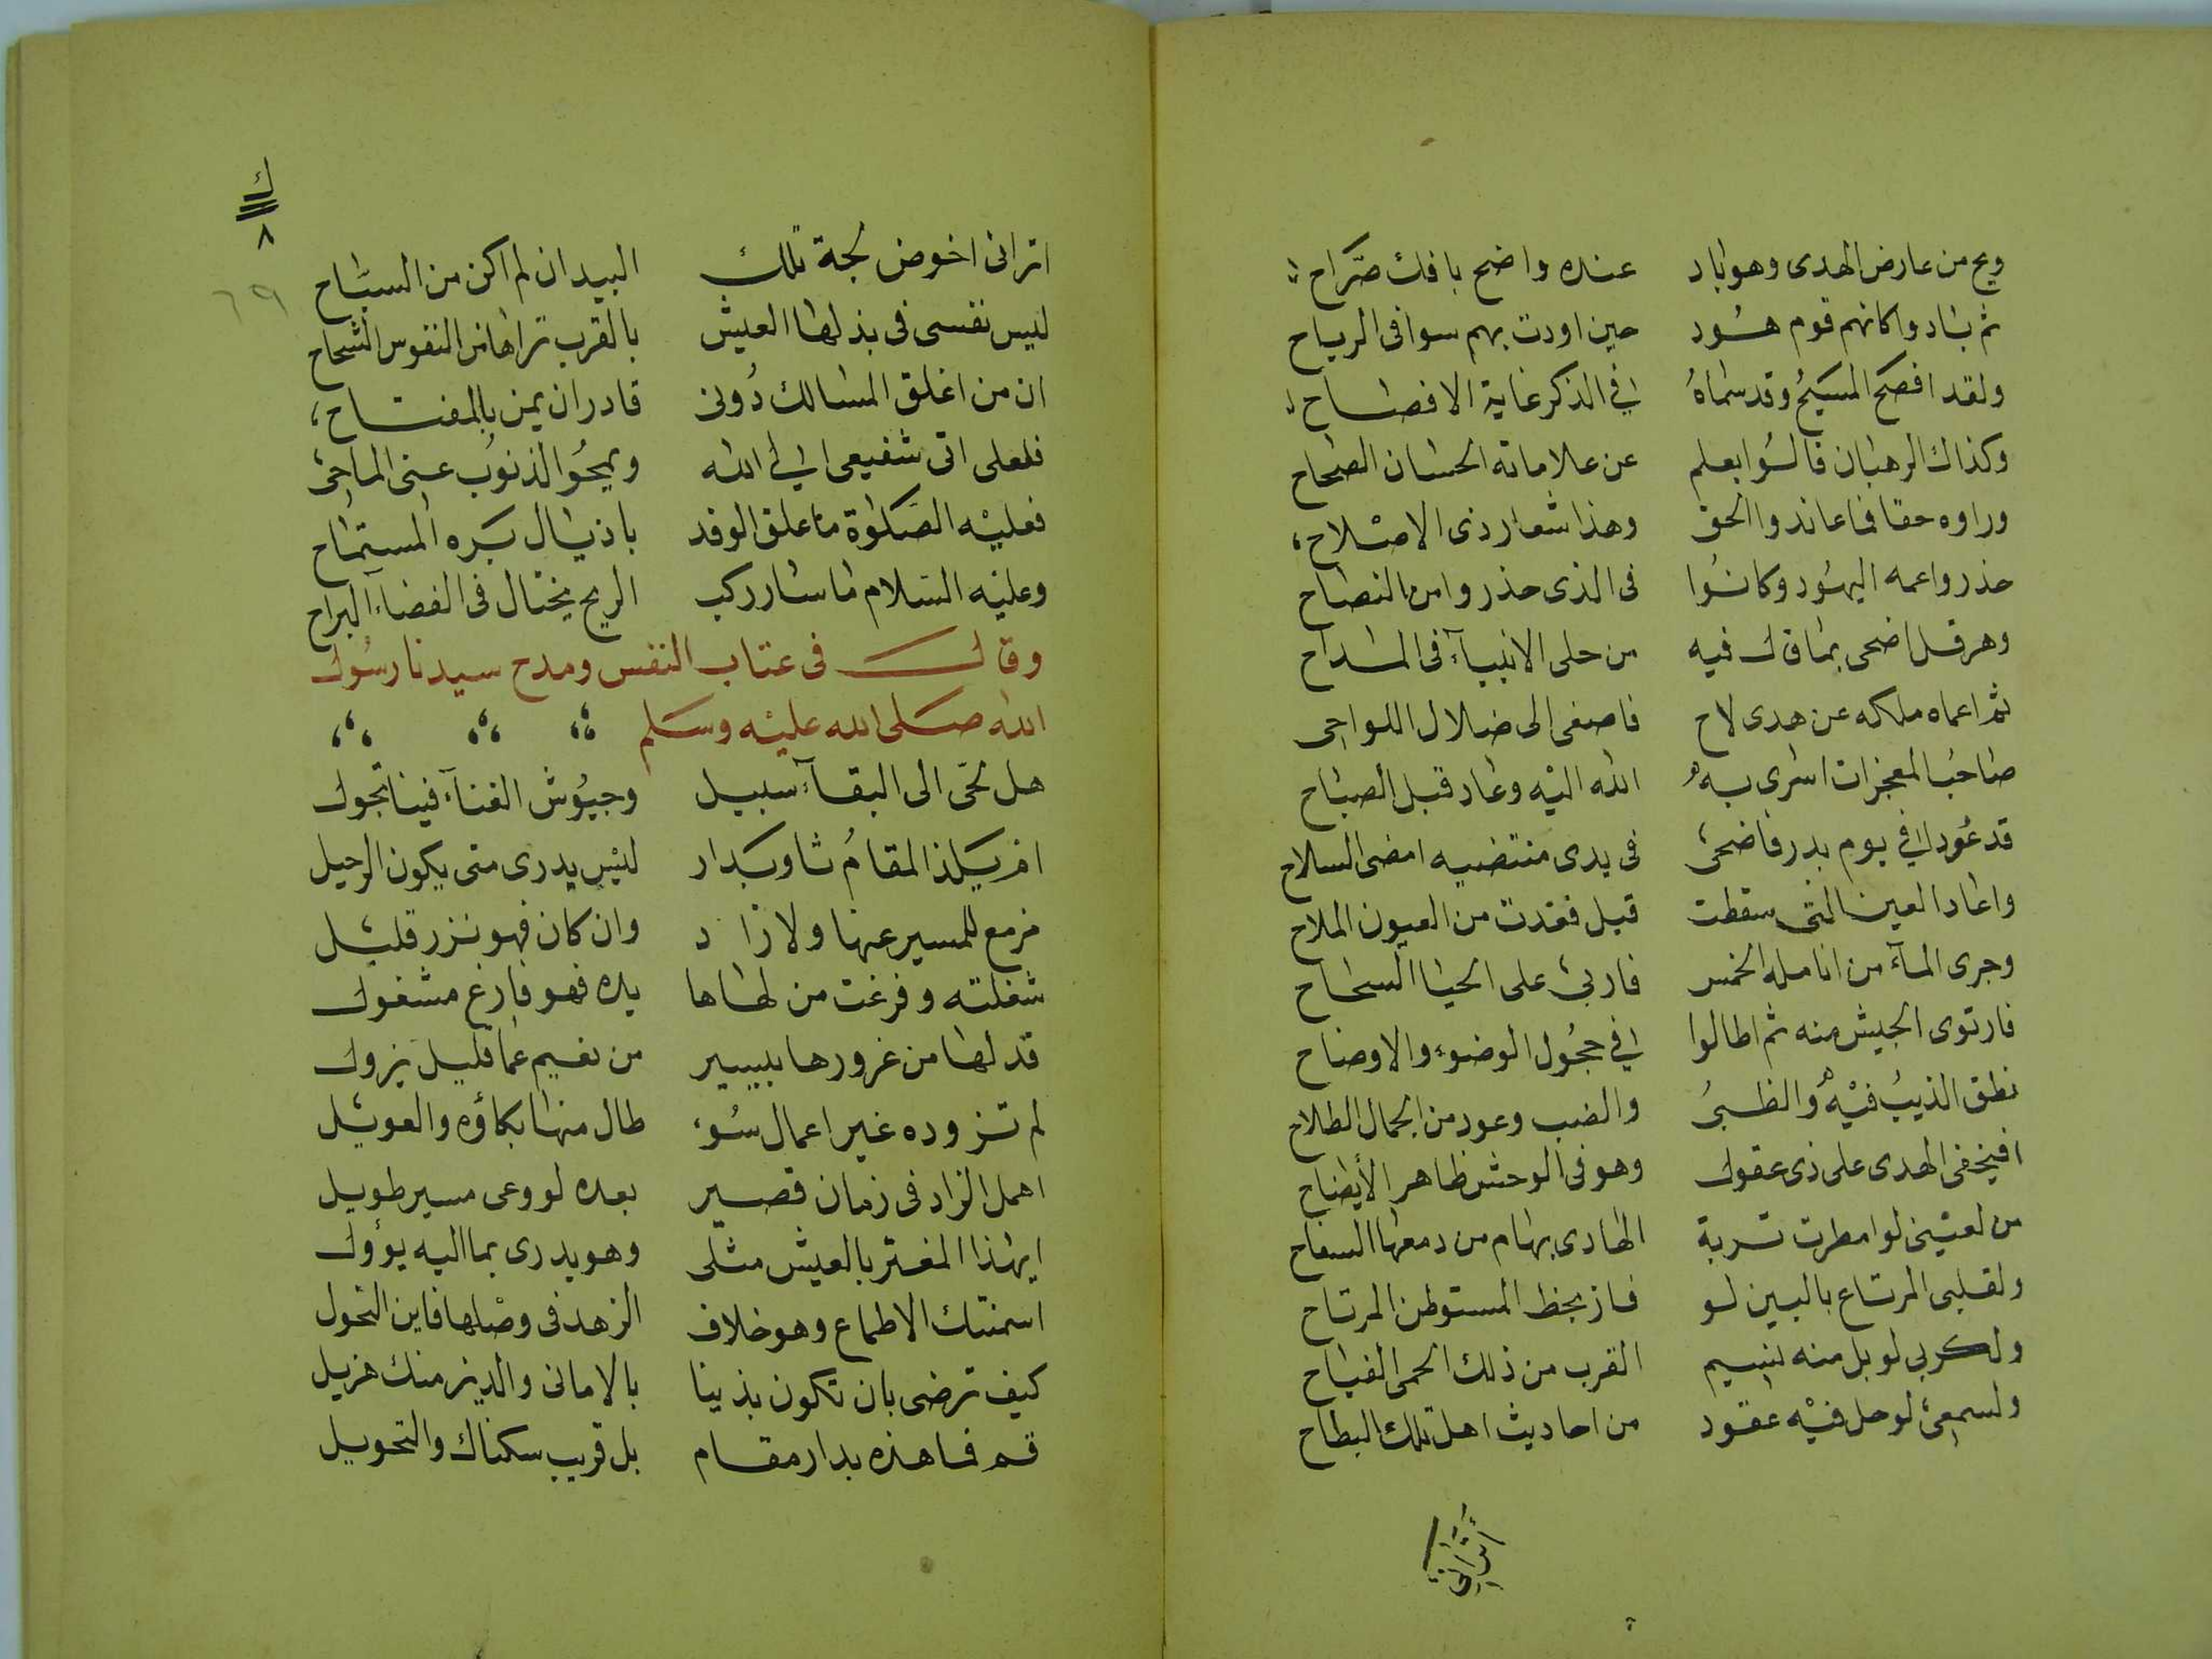 ويح من عارض الهدى وهو باد عنده واضح بافك صراح
ثم بادوا كانهم قوم هود حين اودت بهم سوافى الرياح
ولقد افصح المسيح وقد سماه في الذكر غاية الافصاح
وكذاك الرهبان فالسوا بعلم عن علاماته الحسان الصحاح
وراوه حقا فما عاندوا الحق وهذا شعار ذى الاصلاح
حذروا عمه اليهود وكانوا فى الذى حذروا من النصاح
وهرقل اضحى بما قال فيه من حلى الانبيآء فى المداح
ثم اعماه ملكه عن هدى لاح فاصغى الى ضلال اللواحى
صاحب المعجزات اسرى به الله اليه وعاد قبل الصباح
قد عود في يوم بدر فاضحى فى يدى منتضيه امضى السلاح
واعاد العين التى سقطت قبل فغدت من العيون الملاح
وجرى المآء من انامله الخمس فاربى على الحيا السحاح
فارتوى الجيش منه ثم اطالوا في حجول الوضوء والاوضاح
نطق الذيب فيه والظبى والضب وعود من الجمال الطلاح
افيخفى الهدى على ذى عقول وهو فى الوحش ظاهر الأيضاح
من لعينى لو امطرت تربة الهادى بهام من دمعها السفاح
ولقلبى المرتاع بالبين لو فاز بحظ المستوطن المرتاح
ولكربى لو بل منه نسيم القرب من ذلك الحمى الفياح
ولسمعى لو حل فيه عقود من احاديث اهل تلك البطاح
أترانى
ك
٨
٦٩
اترانى اخوض لجة تلك البيد ان لم اكن من السياح
ليس نفسى فى بذلها العيش بالقرب تراها من النفوس الشحاح
ان من اغلق المسالك دونى قادر ان يمن بالمفتاح
فلعلى اتى شفيعى الى الله ويمحو الذنوب عنى الماحى
فعليه الصلوة ما علق الوفد باذيال بره المستماح
وعليه السلام ما سار ركب الريح يختال فى الفضآء البراح
وقال فى عتاب النفس ومدح سيدنا رسول
الله صلى الله عليه وسلم
هل لحى الى البقآء سبيل وجيوش الفنآء فينا تجول
ام يلذ المقام ثاو بدار ليس يدرى متى يكون الرحيل
مزمع للمسير عنها ولا زاد وان كان فهو نزر قليل
شغلته وفرغت من لهاها يده فهو فارغ مشغول
قد لها من غرورها بيسير من نعيم عما قليل يزول
لم تزوده غير اعمال سوء طال منها بكاؤه والعويل
اهمل الزاد فى زمان قصير بعده لو وعى مسير طويل
ايهذا المغتر بالعيش مثلى وهو يدرى بما اليه يؤول
اسمنتك الاطماع وهو خلاف الزهد فى وصلها فاين النحول
كيف ترضى بان تكون بذينا بالامانى والدين منك هزيل
قم فما هذه بدار مقام بل قريب سكناك والتحويل